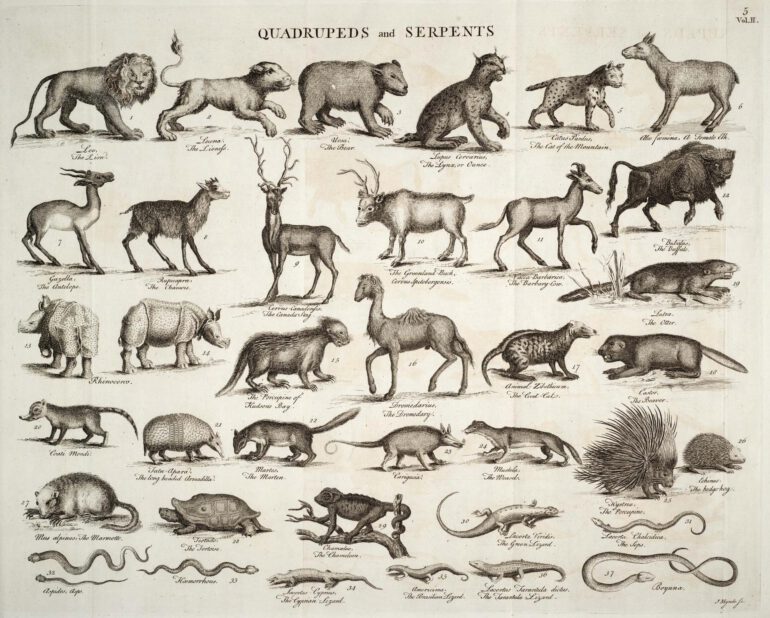 5
Vol. II.
QUADRUPEDS and SERPENTS
1
2
3
4
5
6
Leo,
The Lion.
Leæna.
The Lioness.
Ursa.
The Bear.
Lupus Cervarius,
The Lynx, or Ounce.
Catus Pardus,
The Cat of the Mountain.
Alce fœmina, A Female Elk.
7
8
9
10
11
12
Gazella.
The Antelope.
Rupicapra.
The Chamois.
Cervus Canadensis
The Canada Stag
The Greenland Buck,
Cervus Spitsbergensis.
Vacca Barbarica,
The Barbary Cow.
Bubalus,
The Buffalo.
19
Lutra.
The Otter.
13
14
15
16
17
18
Rhinoceros.
The Porcupine of
Hudsons Bay.
Dromedarius,
The Dromedary.
Animal Zibethicum.
The Civet Cat.
Castor.
The Beaver.
20
21
22
23
24
25
26
Coati Mondi.
Tatu Apara.
The long headed Armadilla.
Martes
The Marten.
Carigueia.
Mustela.
The Weasle.
Hystrix.
The Porcupine.
Echinus.
The hedge hog.
27
28
29
30
31
Mus alpinus; The Marmotte.
Testudo
The Tortoise.
Chamæleo,
The Chameleon.
Lacerta Viridis.
The Green Lizard.
Lacerta Chalcidica.
The Seps.
32
33
34
35
36
37
Aspides, Asps.
Hæmorrhous.
Lacertus Cyprius,
The Cyprian Lizard.
Americima.
The Brasilian Lizard.
Lacertus Tarantula dictus.
The Tarantula Lizard.
Boyuna.
J. Mynde sc.